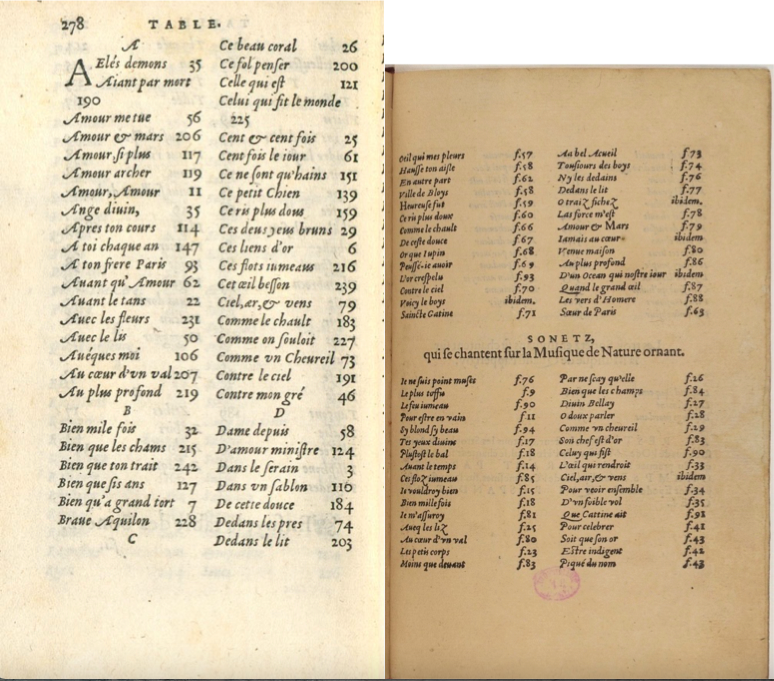 278 TABLE.
A
AElés demons 35
Aiant par mort
190
Amour me tue 56
Amour & mars 206
Amour, si plus 117
Amour archer 119
Amour, Amour 11
Ange diuin, 35
Apres ton cours 114
A toi chaque an 147
A ton frere Paris 93
Auant qu'Amour 62
Auant le tans 22
Auec les fleurs 231
Auec le lis 50
Auéques moi 106
Au cœur d'vn val 207
Au plus profond 219
B
Bien mile fois 32
Bien que les chams 215
Bien que ton trait 242
Bien que sis ans 127
Bien qu'a grand tort 7
Braue Aquilon 228
C
Ce beau coral 26
Ce fol penser 200
Celle qui est 121
Celui qui fit le monde
225
Cent & cent fois 25
Cent fois le iour 61
Ce ne sont qu'hains 151
Ce petit Chien 139
Ce ris plus dous 159
Ces deus yeus bruns 29
Ces liens d'or 6
Ces flots iumeaus 216
Cet œil besson 239
Ciel, air, & vens 79
Comme le chault 183
Comme on souloit 227
Comme vn Cheureil 73
Contre le ciel 191
Contre mon gré 46
D
Dame depuis 58
D'amour ministre 124
Dans le serain 3
Dans vn sablon 110
De cette douce 184
Dedans les pres 74
Dedans le lit 203
Oeil qui mes pleurs f.57
Hausse ton aisle f.58
En autre part f.62
Ville de Bloys f.58
Heureuse fut f.59
Ce ris plus doux f.60
Comme le chault f.66
De ceste douce f.67
Or que Iupin f.68
Peusse-ie auoir f.69
L'or crespelu f.93
Contre le ciel f.70
Voicy le boys ibidem.
Saincte Gatine f.71
Aa bel Acueil f.73
Tousiours des boys f.74
N'y les dedains f.76
Dedans le lit f.77
O traiz fichez ibidem.
Las force m'est f.78
Amour & Mars f.79
Iamais au cœur ibidem
Venue maison f.80
Au plus profond f.86
D'un Ocean qui nostre iour ibidem
Quand le grand œil f.87
Les vers d'Homere f.88
Sœur de Paris f.63
SONETZ,
qui se chantent sur la Musique de Nature ornant.
Ie ne suis point muses f.76
Le plus toffu f.9
Le feu iumeau f.90
Pour estre en vain f.11
Sy blond sy beau f.94
Tes yeux diuins f.17
Plustost le bal f.18
Auant le temps f.14
Ces floz iumeau f.85
Ie vouldroy bien f.15
Bien mille fois f.18
Ie m'assuroy f.81
Aueq les liz f.25
Au cœur d'vn val f.80
Les petis corps f.23
Moins que deuant f.83
Par ne scay qu'elle f.26
Bien que les champs f.84
Diuin Bellay f.27
O doux parler f.28
Comme vn cheureil f.29
Son chef est d'or f.83
Celuy qui fist f.90
L'œil qui rendroit f.33
Ciel, air, & vens ibidem
Pour veoir ensemble f.34
D'vn foible vol f.35
Que Cattine ait f.91
Pour celebrer f.41
Soit que son or f.43
Estre indigent f.42
Piqué du nom f.43